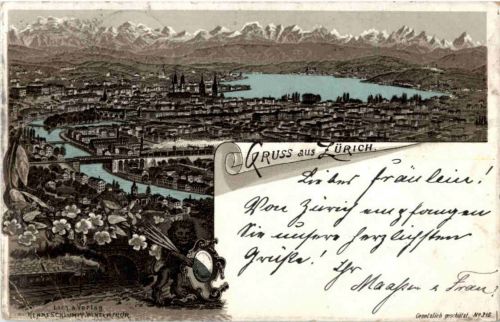 GRUSS aus ZÜRICH.
Liebes Fräulein!
Von Zürig empfangen
Sie unsere herzlichsten
Grüße! Ihr
Maassen u Frau
Lith. & Verlag
Gesetzlich geschützt. No 316